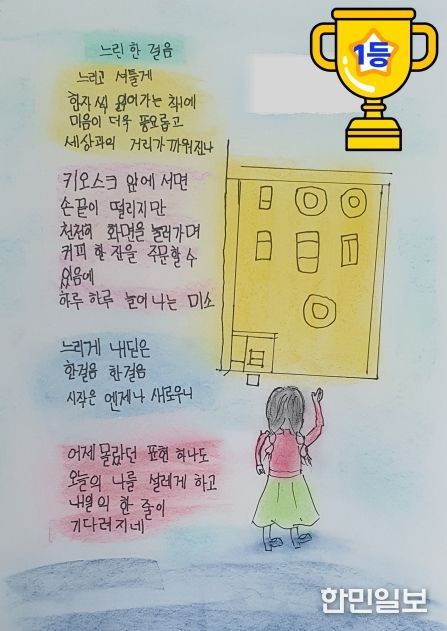 느린 한 걸음
느리고 서툴게
한자 씩 읽어가는 책에
마음이 더욱 풍요롭고
세상과의 거리가 까워진다
키오스크 앞에 서면
손끝이 떨리지만
천천히 화면을 눌러가며
커피 한 잔을 주문할 수
있음에
하루 하루 늘어 나는 미소
느리게 내딛은
한걸음 한걸음
시작은 언제나 새로우니
어제 몰랐던 표현 하나도
오늘의 나를 설레게 하고
내일의 한 줄이
기다려지네
1등
한민일보